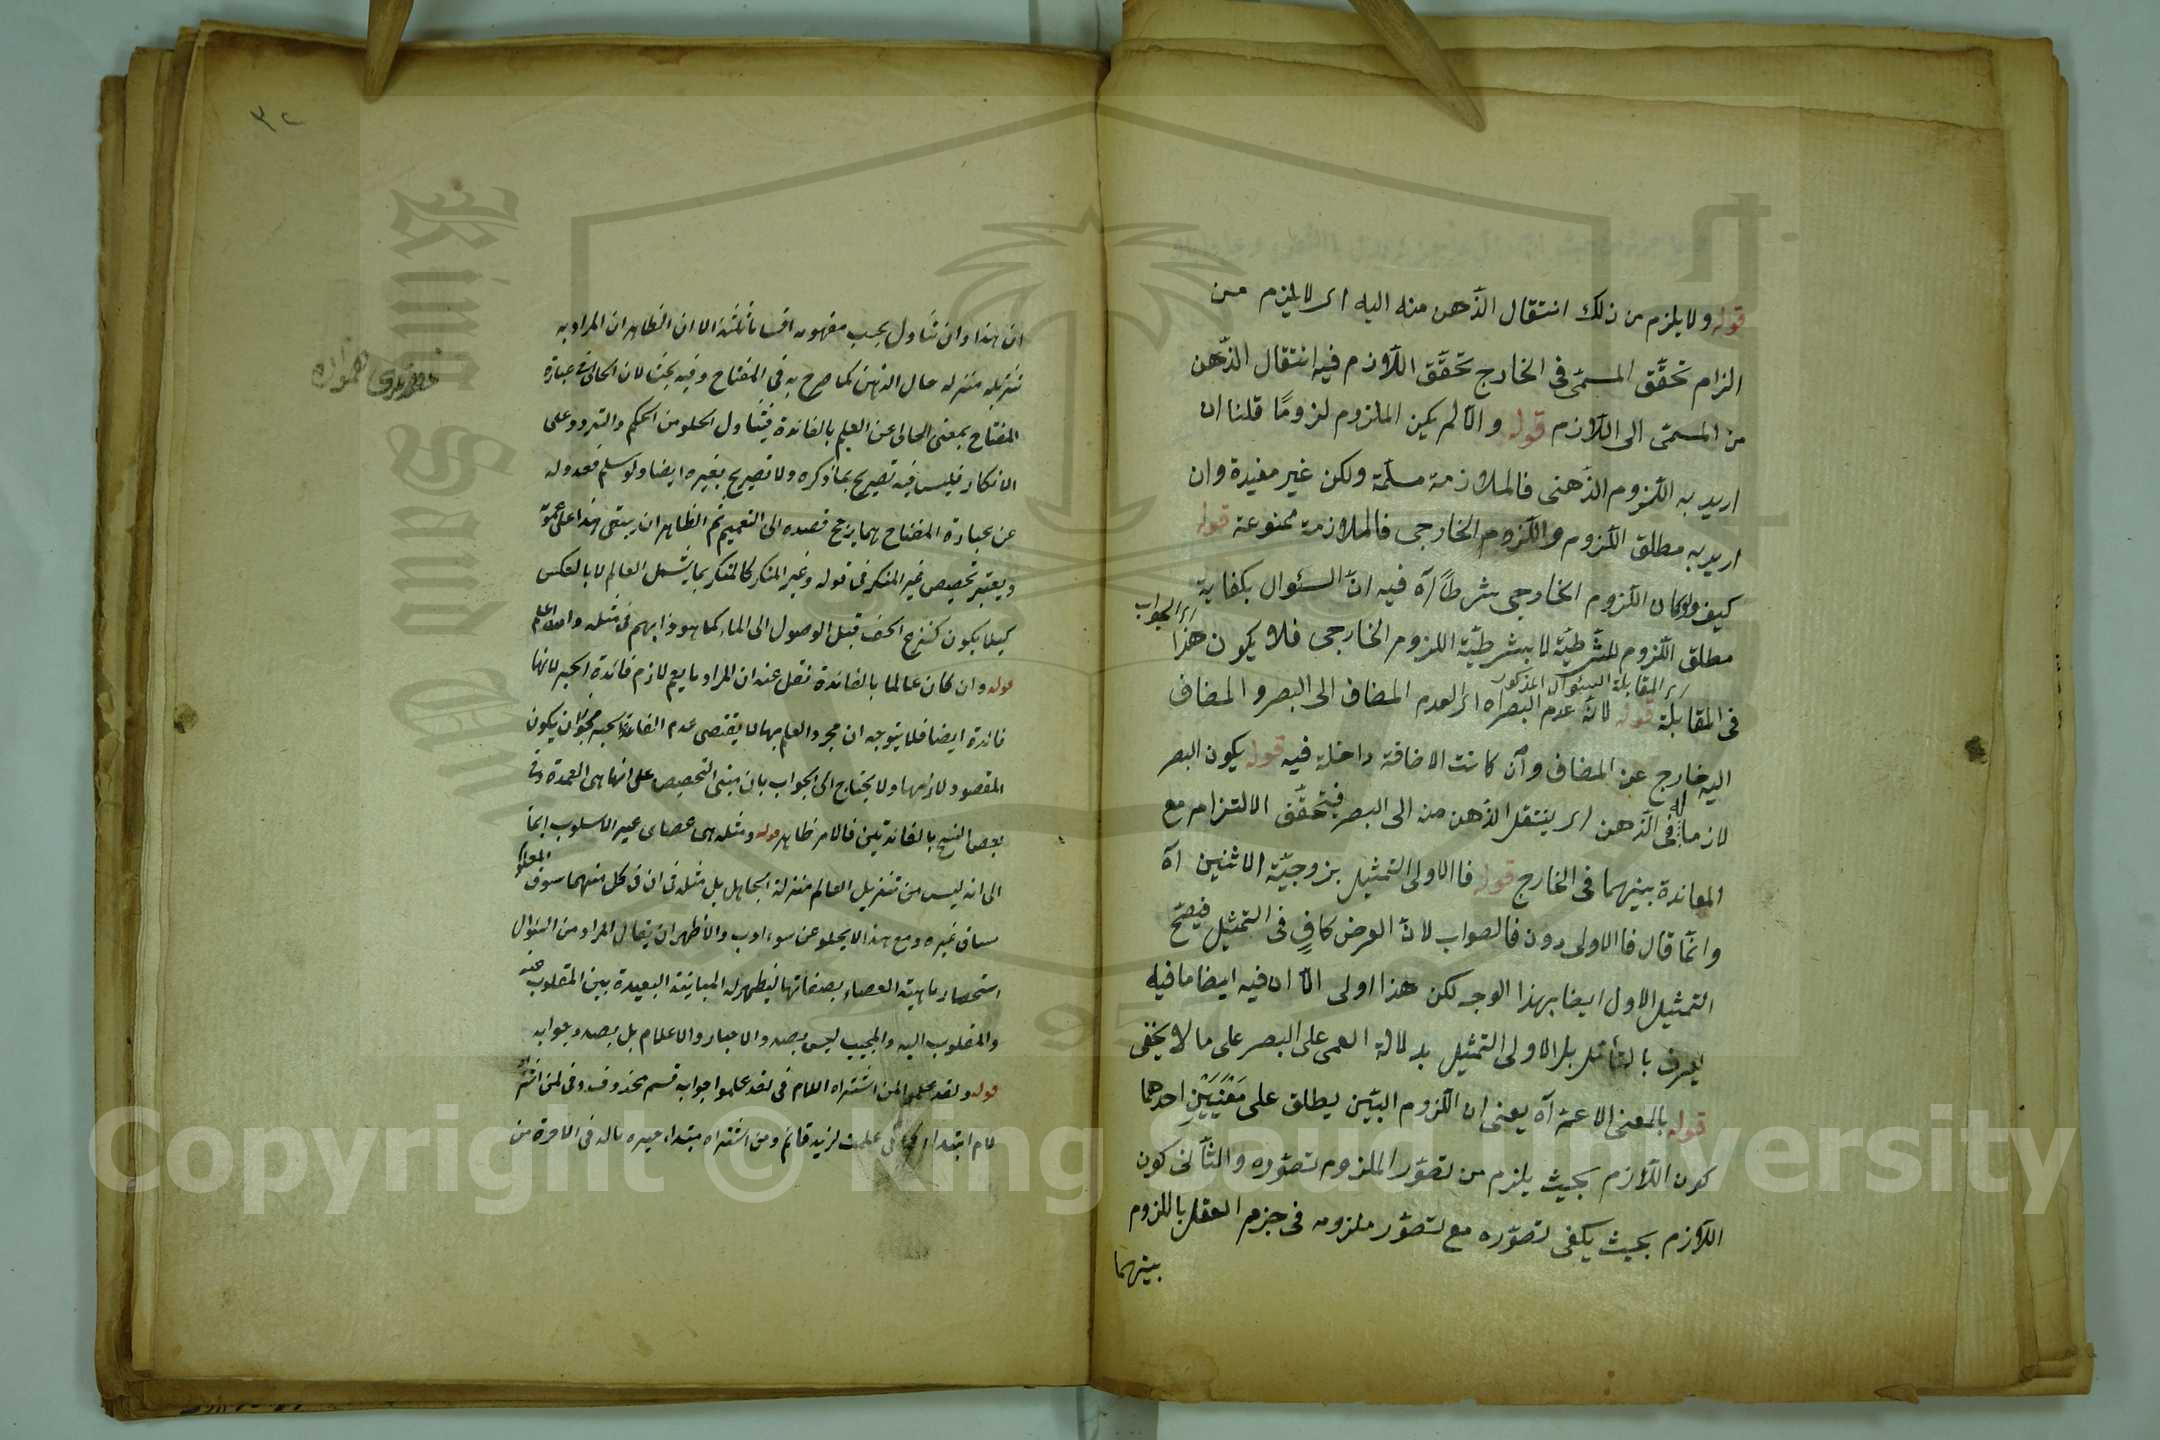 قوله ولا يلزم من ذلك انتقال الذهن منه اليه اى لا يلزم من
الزام تحقق المسمى فى الخارج تحقق اللازم فيه انتقال الذهن
من المسمى الى اللازم قوله والا لم يكن الملزوم لزومًا قلنا ان
اريد به اللزوم الذهنى فالملازمة مسلمة ولكن غير مفيدة وان
اريد به مطلق اللزوم واللزوم الخارجى فالملازمة ممنوعة قوله
كيف ولو كان اللزوم الخارجى شرطًا آه فيه ان السئوال بكفاية
اى الجواب
مطلق اللزوم للشرطية لا بشرطية اللزوم الخارجى فلا يكون هذا
اى المقابلة السئوال المذكور
فى المقابلة قوله لانه عدم البصر آه اى العدم المضاف الى البصر و المضاف
اليه خارج عن المضاف وان كانت الاضافة داخلة فيه قوله يكون البصر
لازما له فى الذهن اى ينتقل الذهن منه الى البصر فيتحقق الالتزام مع
المعاندة بينهما فى الخارج قوله فالاولى التمثيل بزوجية الاثنين آه
وانما قال فالاولى دون فالصواب لان العرض كافٍ فى التمثيل فيصح
التمثيل الاول ايضا بهذا الوجه لكن هذا اولى الا ان فيه ايضا ما فيه
يعرف بالتأمل بل الاولى التمثيل بدلالة العمى على البصر على ما لا يخفى
قوله بالمعنى الاعم آه يعنى ان اللزوم البين يطلق على معنيين احدهما
كون اللازم بحيث يلزم من تصور الملزوم تصوره والثانى كون
اللازم بحيث يكفى تصوره مع تصور ملزومه فى جزم العقل باللزوم
بينهما
٣٢
ان هذا وان تناول بحسب مفهومه اقساما ثلثة الا ان الظاهر ان المراد به
تنزيله منزلة خال الذهن كما صرح به فى المفتاح وفيه بحث لان الخالى فى عبارة
المفتاح بمعنى الخالى عن العلم بالفائدة فيتناول الخلو من الحكم والتردد وعلى
الانكار فليس فيه تصريح بما ذكره ولا تصريح بغيره ايضا ولو سلم فعدوله
عن عبارة المفتاح بهما يرجح قصده الى التعميم ثم الظاهر ان يبقى هذا على عمومه
ويعتبر تخصيص غير المنكر فى قوله وغير المنكر كالمنكر بما يشمل العالم لا بالعكس
كيلا يكون كنزع الخف قبل الوصول الى الماء كما هو دابهم فى مثله
قوله وان كان عالما بالفائدة نقل عنه ان المراد ما يعم لازم فائدة الخبر لانها
فائدة ايضا فلا يتوجه ان مجرد العلم بها لا يقتضى عدم القاء الخبر لجواز ان يكون
المقصود لازمها ولا يحتاج الى الجواب بان مبنى التخصيص على انها هى العمدة وفى
بعض النسخ بالفائدتين فالامر ظاهر قوله ومثله هى عصاى غير الاسلوب ايماء
الى انه ليس من تنزيل العالم منزلة الجاهل بل مثله فى ان فى كل منهما سوق المعلوم
مساق غيره ومع هذا لا يخلو عن سوء ادب والاظهر ان يقال المراد من السئوال
استحضار ماهية العصاء بصفاتها ليظهر له المباينة البعيدة بين المقلوب عنه
والمقلوب اليه والمجيب ليس بصدد الاخبار والاعلام بل بصدد جوابه
قوله ولقد علموا لمن اشتراه اللام فى لقد علموا جواب قسم محذوف وفى لمن اشتراه
لام ابتداء كما فى علمت لزيد قائم ومن اشتراه مبتداء خبره ماله فى الآخرة من